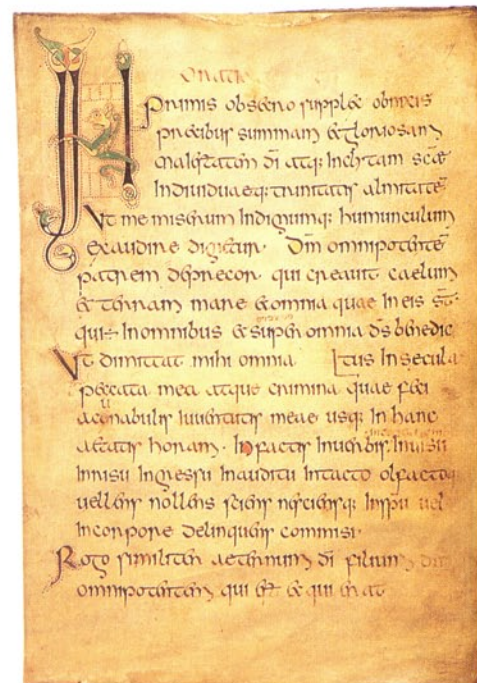 Oratio
IN primis obsecro supplex obnixis
precibus summam & gloriosam
maiestatem dī atq; inclytam scāe
indiuiduaeq; trinitatis almitatē
Ut me miserum indignumq; humunculum
exaudire dignetur. Dm̄ omnipotentē
patrem deprecor qui creauit caelum
& terram mare & omnia quae in eis st̄.
qui ÷ in omnibus & super omnia ds̄ benedic
Ut dimittat mihi omnia tus in secula
peccata mea atque crimina quae feci
a cunabulis iuuentutis meae usq; in hanc
aetatis horam. In factis in uerbis. in uisu
in risu in gressu in auditu in tacto olfactoq;
uellens nollens sciens nesciensq; in spū uel
in corpore delinquens commisi.
Rogo similiter aeternum dī filium dm̄
omnipotentem qui & qui erat